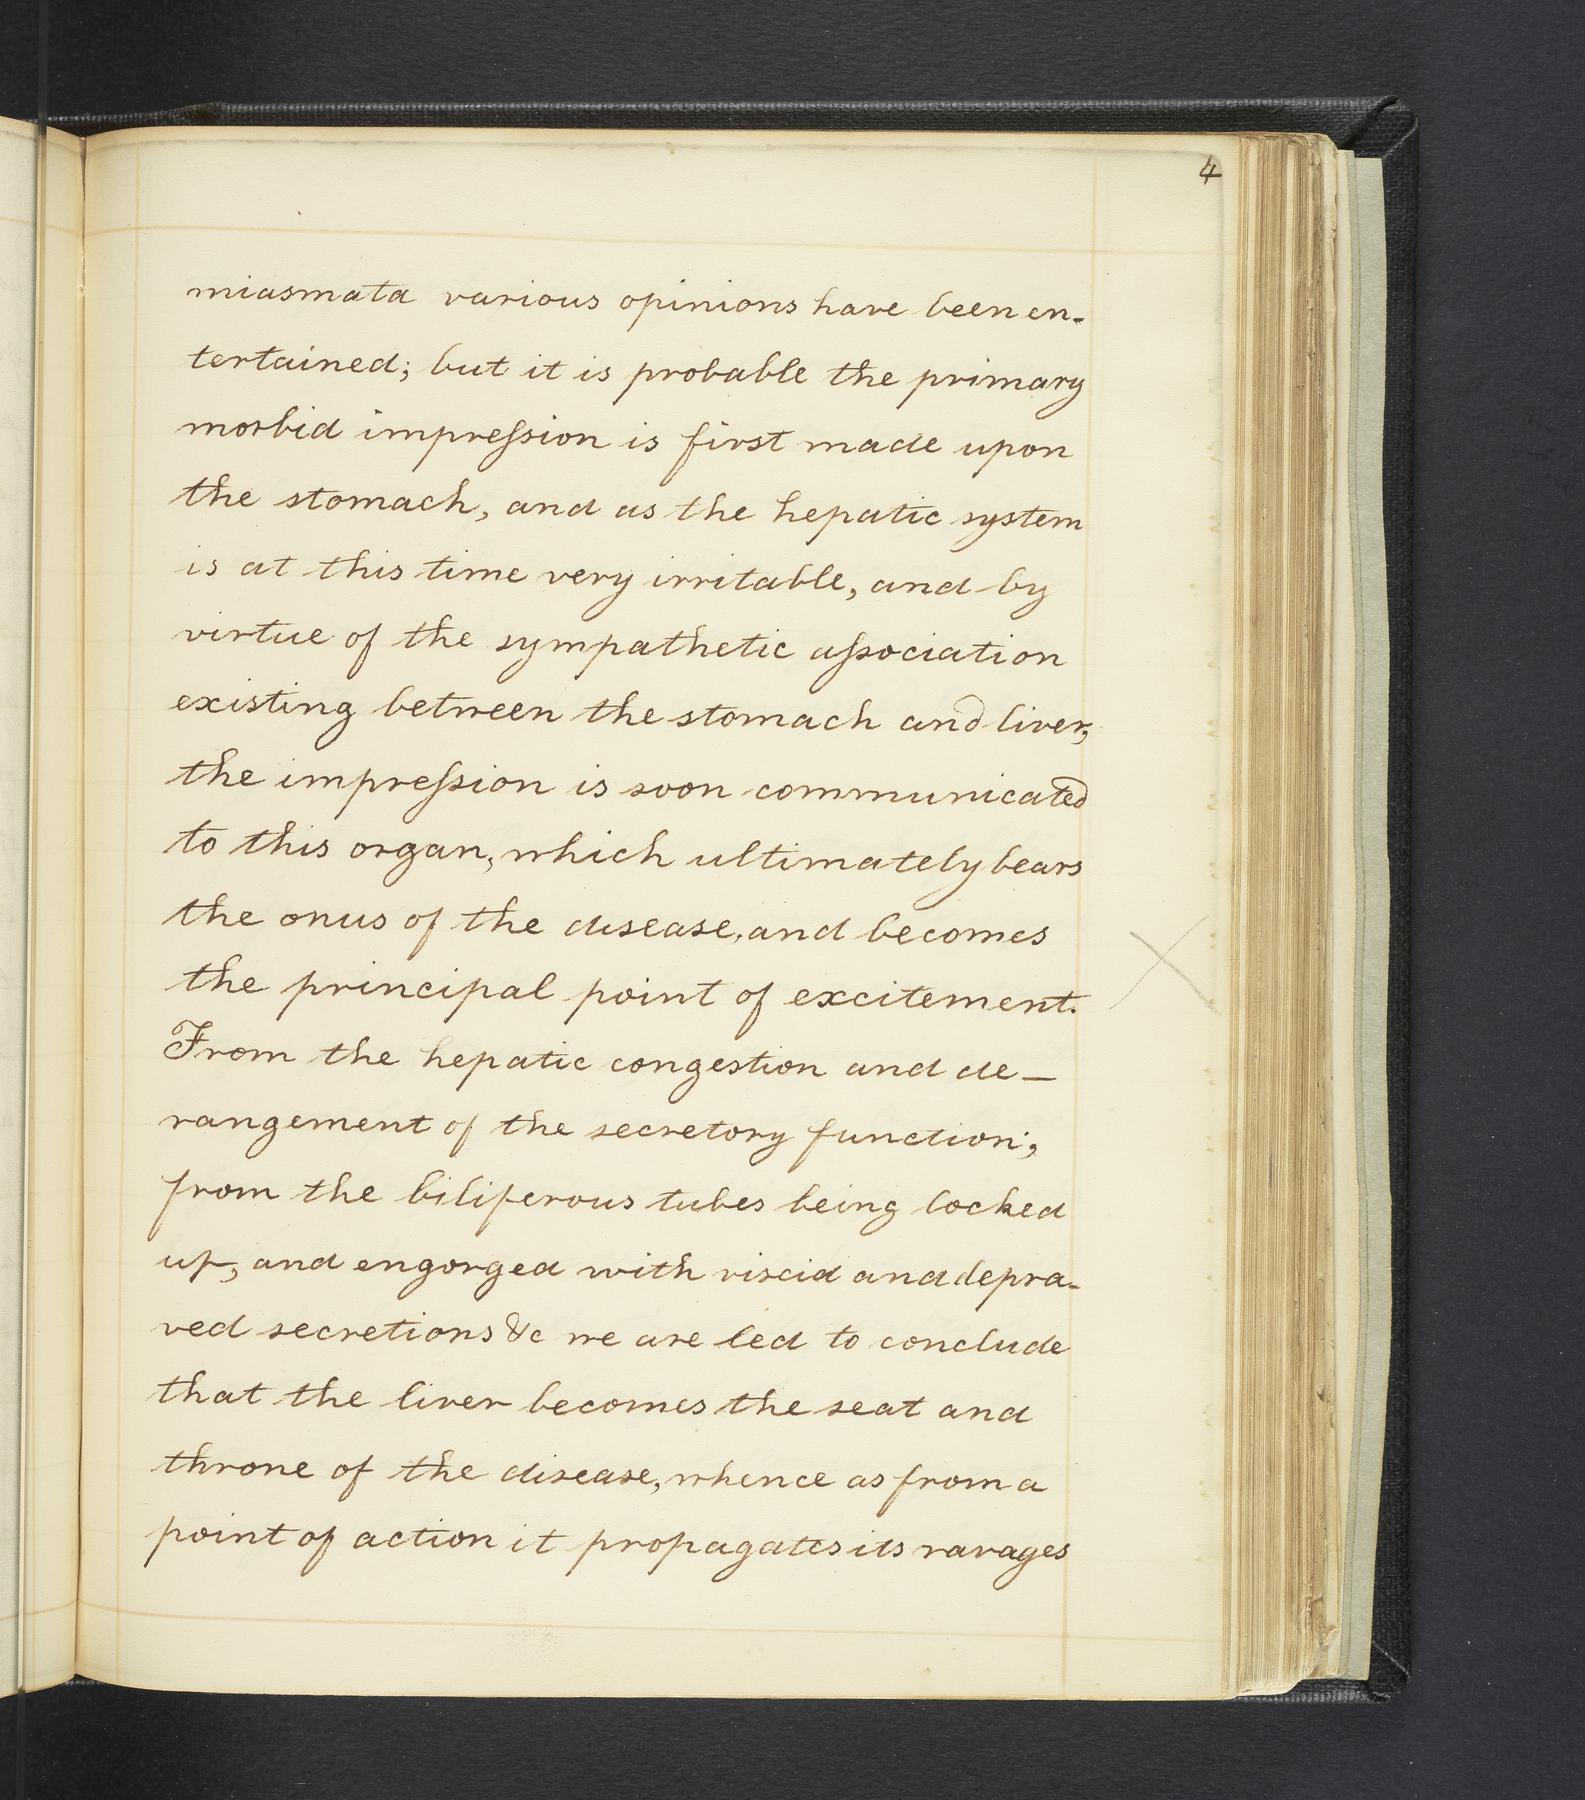 4
miasmata various opinions have been en-
tertained; but it is probable the primary
morbid impreſsion is first made upon
the stomach, and as the hepatic system
is at this time very irritable, and by
virtue of the sympathetic aſsociation
existing between the stomach and liver,
the impreſsion is soon communicated
to this organ, which ultimately bears
the onus of the disease, and becomes
the principal point of excitement.
From the hepatic congestion and de-
rangement of the secretory function,
from the biliferous tubes being locked
up, and engorged with viscid and depra-
ved secretions &c we are led to conclude
that the liver becomes the seat and
throne of the disease, whence as from a
point of action it propagates its ravages